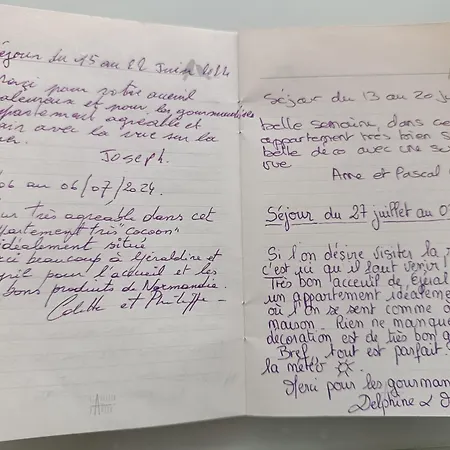 Séjour du 15 au 22 Juin 2024
Merci pour votre accueil
chaleureux et pour les gourmandises
appartement agréable et
avec la vue sur la
mer.
Joseph.
06 au 06/07/2024.
très agréable dans cet
appartement très "cocoon"
idéalement situé
merci beaucoup à Géraldine et
pour l'accueil et les
bons produits de Normandie.
Colette et Philippe
Séjour du 13 au 20 ju
belle semaine, dans ce
appartement très bien s
belle déco avec une su
vue
Anne et Pascal
Séjour du 27 juillet au 0
Si l'on désire visiter la
c'est ici qu'il faut venir
Très bon acceuil de Géral
un appartement idéaleme
où l'on se sent comme
maison. Rien ne manqu
décoration est de très bon g
Bref, tout est parfait
la météo
Merci pour les gourman
Delphine &